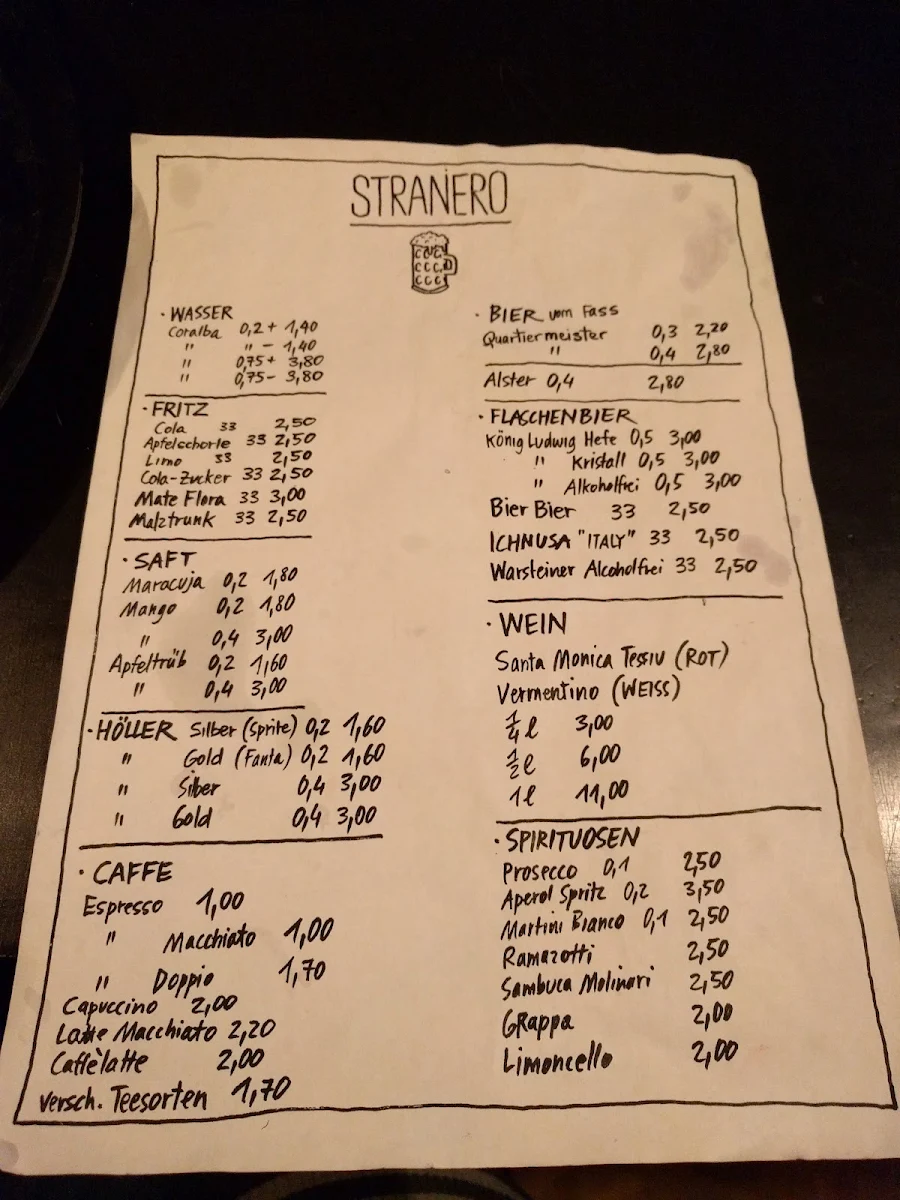 STRANERO
· WASSER
Coralba 0,2 + 1,40
" " - 1,40
" 0,75 + 3,80
" 0,75 - 3,80
· FRITZ
Cola 33 2,50
Apfelschorle 33 2,50
Limo 33 2,50
Cola-Zucker 33 2,50
Mate Flora 33 3,00
Malztrunk 33 2,50
· SAFT
Maracuja 0,2 1,80
Mango 0,2 1,80
" 0,4 3,00
Apfeltrüb 0,2 1,60
" 0,4 3,00
· HÖLLER Silber (Sprite) 0,2 1,60
" Gold (Fanta) 0,2 1,60
" Silber 0,4 3,00
" Gold 0,4 3,00
· CAFFE
Espresso 1,00
" Macchiato 1,00
" Doppio 1,70
Capuccino 2,00
Latte Macchiato 2,20
Caffèlatte 2,00
versch. Teesorten 1,70
· BIER vom Fass
Quartiermeister 0,3 2,20
" 0,4 2,80
Alster 0,4 2,80
· FLASCHENBIER
König Ludwig Hefe 0,5 3,00
" Kristall 0,5 3,00
" Alkoholfrei 0,5 3,00
Bier Bier 33 2,50
ICHNUSA "ITALY" 33 2,50
Warsteiner Alcoholfrei 33 2,50
· WEIN
Santa Monica Tessiu (ROT)
Vermentino (WEISS)
1/4 l 3,00
1/2 l 6,00
1 l 11,00
· SPIRITUOSEN
Prosecco 0,1 2,50
Aperol Spritz 0,2 3,50
Martini Bianco 0,1 2,50
Ramazotti 2,50
Sambuca Molinari 2,50
GRappa 2,00
Limoncello 2,00